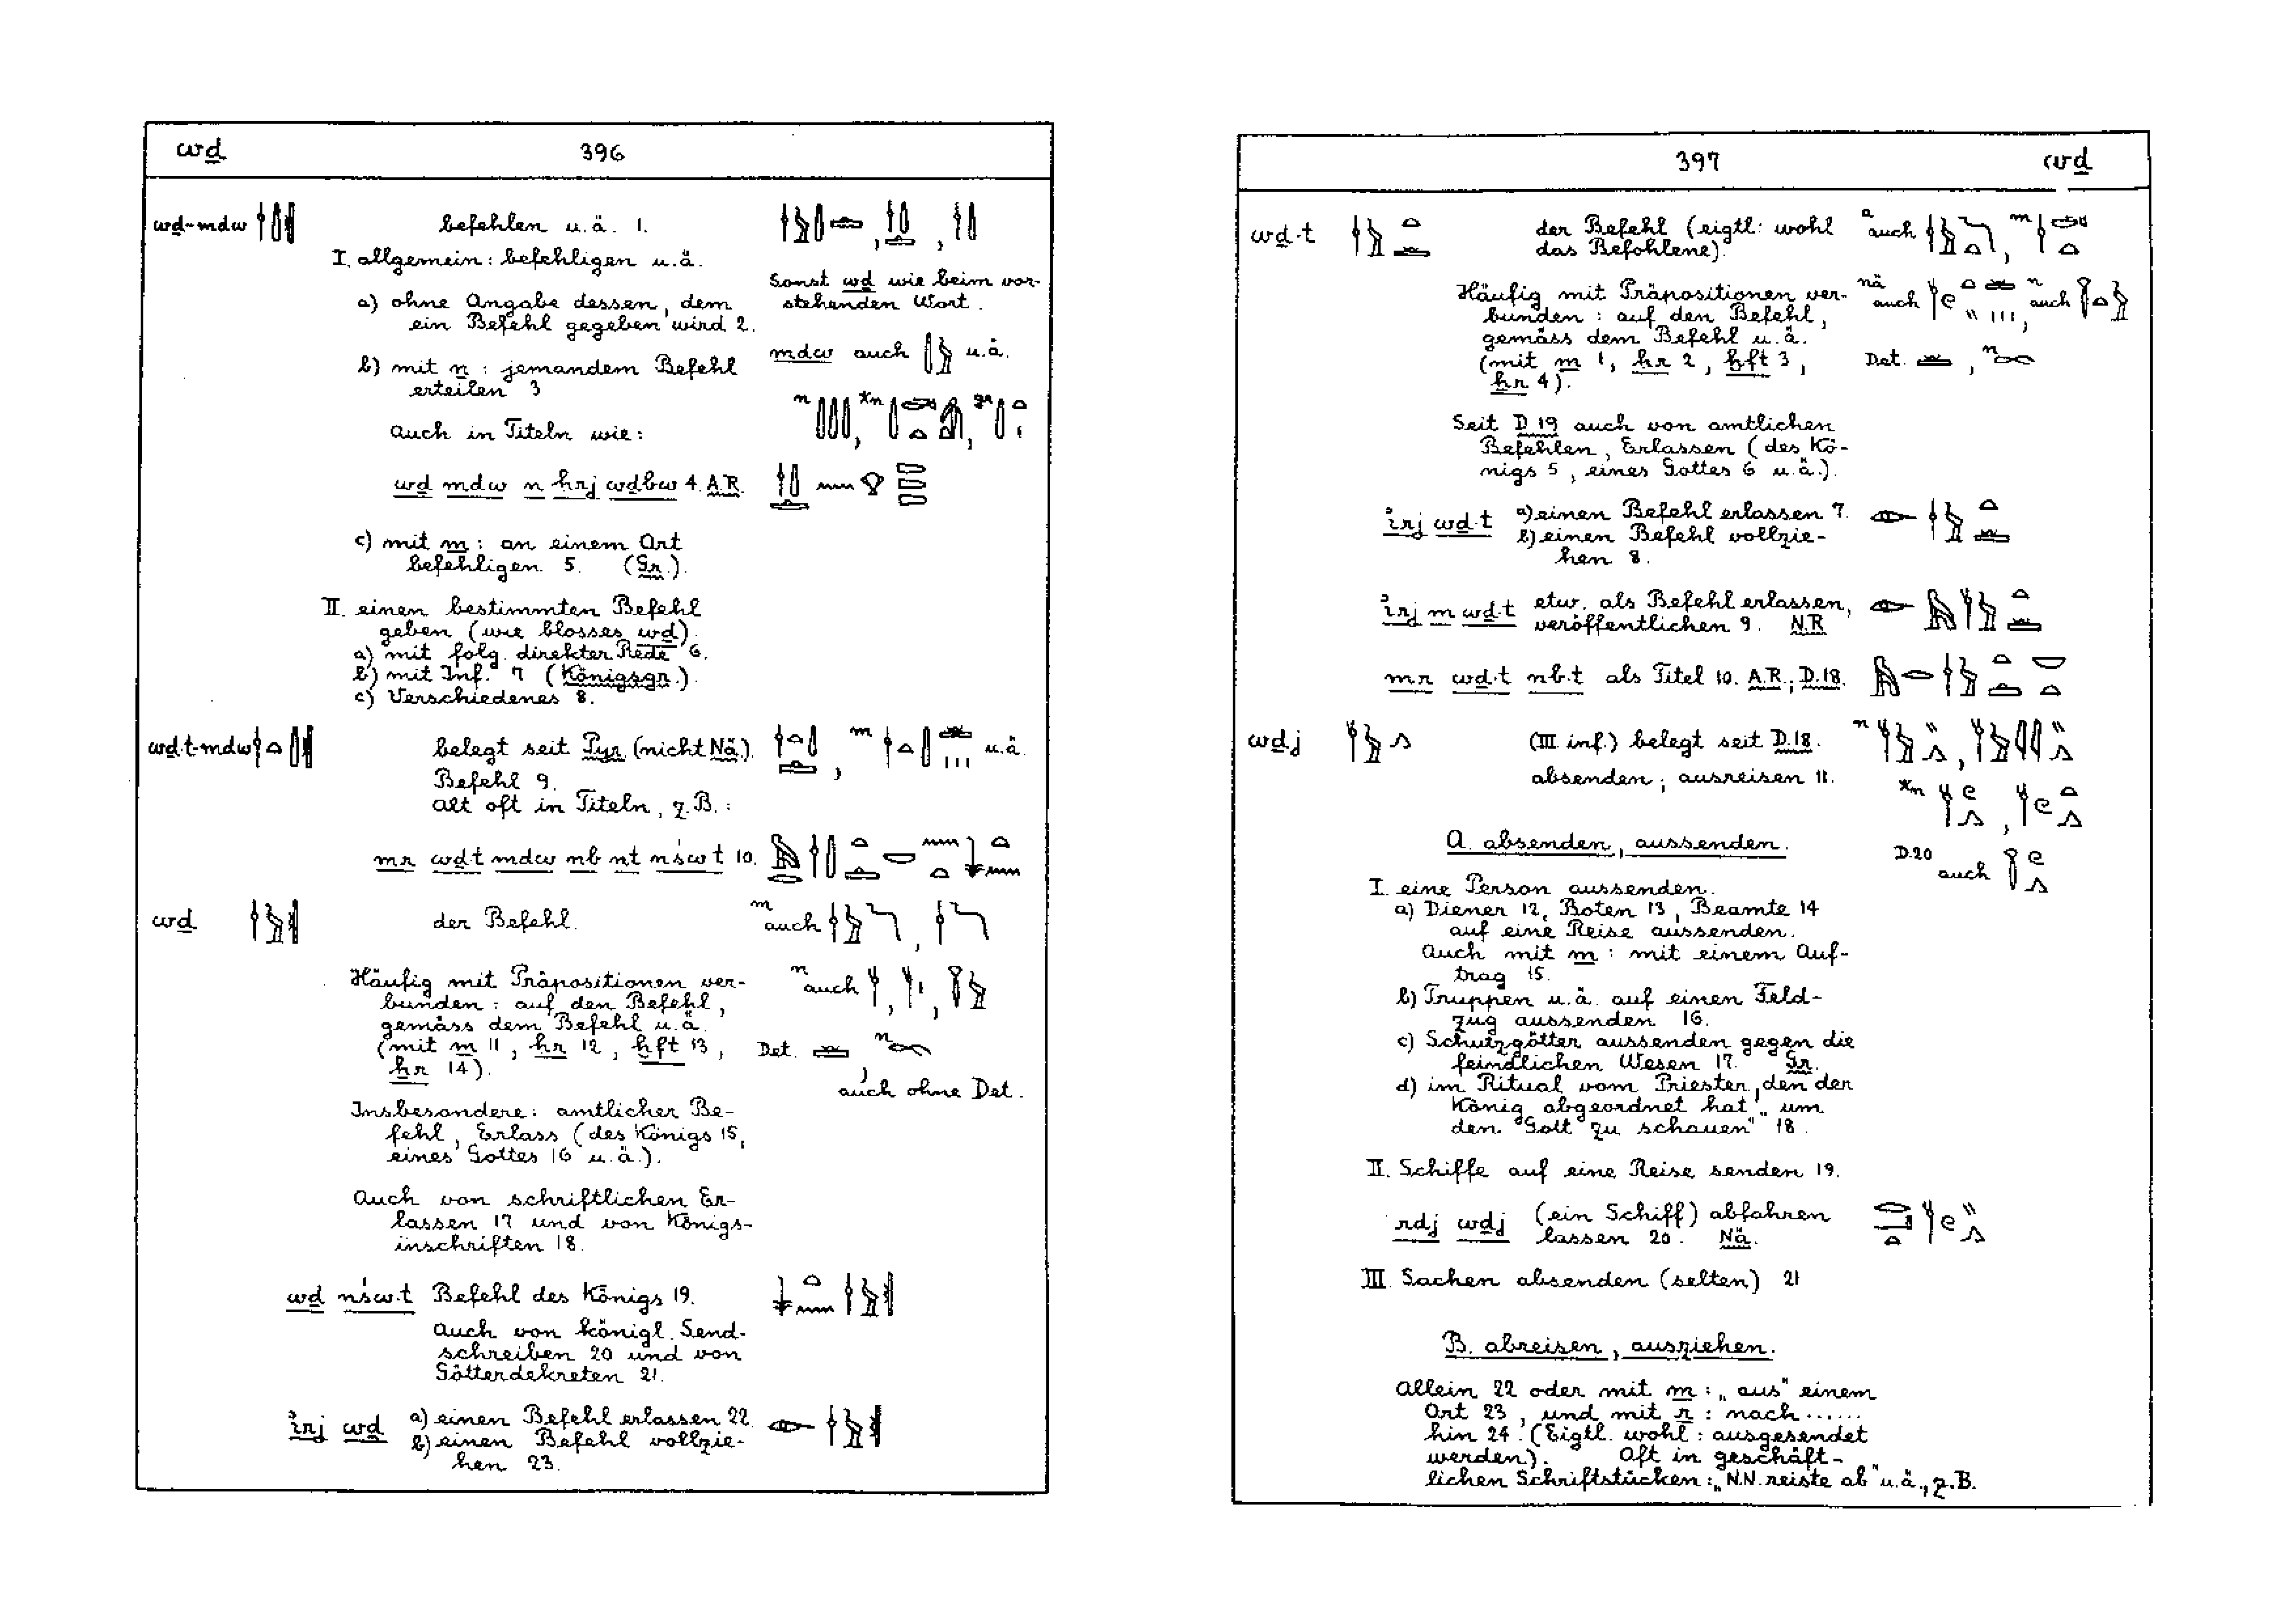 wḏ
396
wḏ-mdw
befehlen u.ä. 1.
I. allgemein: befehligen u.ä.
Sonst wḏ wie beim vor-
stehenden Wort.
a) ohne Angabe dessen, dem
ein Befehl gegeben wird 2.
mdw auch u.ä.
b) mit n : jemandem Befehl
erteilen 3
n *n gr
Auch in Titeln wie:
wḏ mdw n ḥrj wḏbw 4. A.R.
c) mit m : an einem Ort
befehligen 5. (Gr.).
II. einen bestimmten Befehl
geben (wie blosses wḏ).
a) mit folg. direkter Rede 6.
b) mit Inf. 7 (Königsgr.).
c) Verschiedenes 8.
wḏ.t-mdw
belegt seit Pyr. (nicht Nä.).
m u.ä.
Befehl 9.
Alt oft in Titeln, z.B.:
mr wḏ.t mdw nb nt nśw.t 10.
wḏ
der Befehl.
m auch
Häufig mit Präpositionen ver-
bunden : auf den Befehl,
gemäss dem Befehl u.ä.
(mit m 11, ḥr 12, ḫft 13,
ḫr 14).
n auch
Det. , n
auch ohne Det.
Insbesondere: amtlicher Be-
fehl, Erlass (des Königs 15,
eines Gottes 16 u.ä.).
Auch von schriftlichen Er-
lassen 17 und von Königs-
inschriften 18.
wḏ nśw.t Befehl des Königs 19.
Auch von königl. Send-
schreiben 20 und von
Götterdekreten 21.
irj wḏ a) einen Befehl erlassen 22.
b) einen Befehl vollzie-
hen 23.
397
wḏ
wḏ.t
der Befehl (eigtl: wohl
das Befohlene).
a auch , m
Häufig mit Präpositionen ver-
bunden : auf den Befehl,
gemäss dem Befehl u.ä.
(mit m 1, ḥr 2, ḫft 3,
ḫr 4).
nä auch , n auch
Det. , n
Seit D.19 auch von amtlichen
Befehlen, Erlassen (des Kö-
nigs 5, eines Gottes 6 u.ä.).
irj wḏ.t a) einen Befehl erlassen 7.
b) einen Befehl vollzie-
hen 8.
irj m wḏ.t etw. als Befehl erlassen,
veröffentlichen 9. N.R
mr wḏ.t nb.t als Titel 10. A.R.; D.18.
wḏj
(III. inf.) belegt seit D.18.
n
absenden; ausreisen 11.
*n
A. absenden, aussenden.
D.20 auch
I. eine Person aussenden.
a) Diener 12, Boten 13, Beamte 14
auf eine Reise aussenden.
Auch mit m : mit einem Auf-
trag 15.
b) Truppen u.ä. auf einen Feld-
zug aussenden 16.
c) Schutzgötter aussenden gegen die
feindlichen Wesen 17. Gr.
d) im Ritual vom Priester, den der
König abgeordnet hat, „um
den Gott zu schauen" 18.
II. Schiffe auf eine Reise senden 19.
rdj wḏj (ein Schiff) abfahren
lassen 20. Nä.
III. Sachen absenden (selten) 21
B. abreisen, ausziehen.
Allein 22 oder mit m : „aus" einem
Ort 23, und mit r : nach ......
hin 24. (Eigtl. wohl: ausgesendet
werden). Oft in geschäft-
lichen Schriftstücken: „N.N. reiste ab" u.ä., z.B.